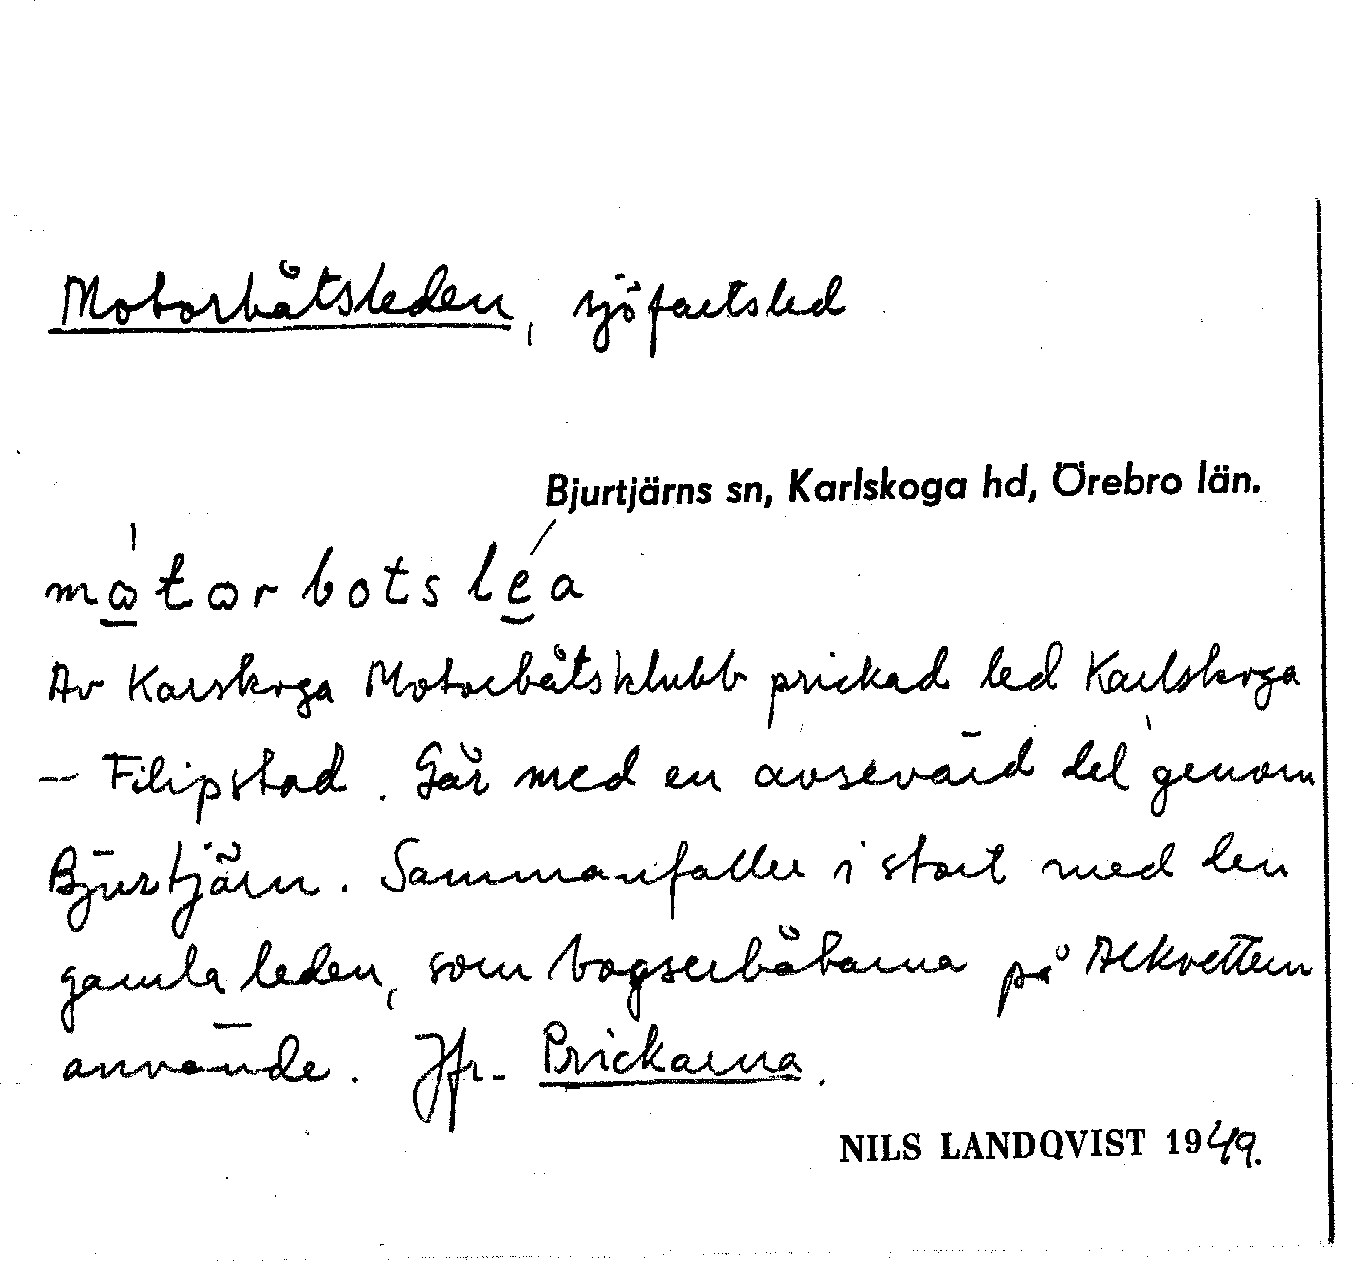 Motorbåtsleden, sjöfartsled
Bjurtjärns sn, Karlskoga hd, Örebro län.
mɷ̲́tɷrbotsle̲a
Av Karskoga Motorbåtsklubb prickad led Karlskoga
— Filipstad. Går med en avsevärd del genom
Bjurtjärn. Sammanfaller i stort med den
gamla leden, som bogserbåtarna på Alkvettern
använde. Jfr. Prickarna.
NILS LANDQVIST 1949.